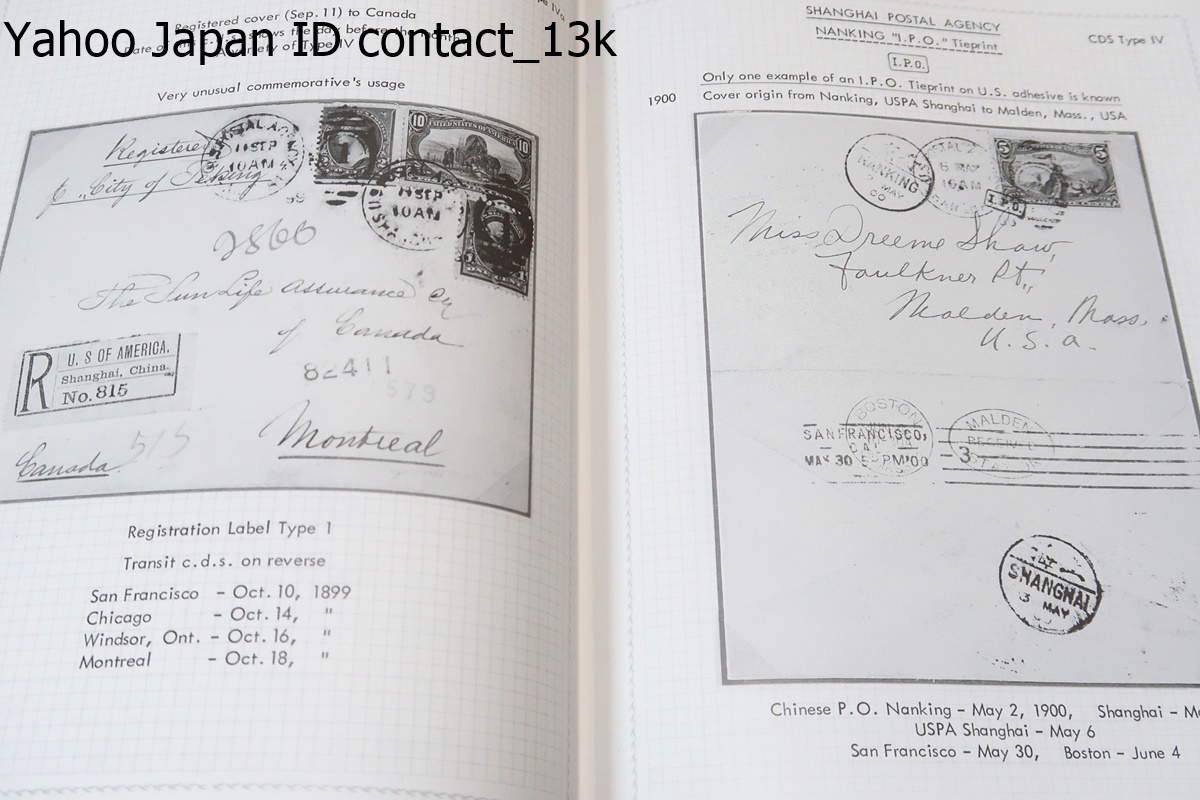 Yahoo Japan ID contact_13k
Registered cover (Sep. 11) to Canada
Very unusual commemorative's usage
Registered
p. City of Peking
POSTAL AGENCY
11 SEP
10 AM
10
UNITED STATES OF AMERICA
10
11 SEP
10 AM
2866
The Sun Life Assurance Co
of Canada
82411
579
R
U. S OF AMERICA.
Shanghai, China.
No. 815
515
Montreal
Canada
Registration Label Type 1
Transit c.d.s. on reverse
San Francisco - Oct. 10, 1899
Chicago - Oct. 14, "
Windsor, Ont. - Oct. 16, "
Montreal - Oct. 18, "
SHANGHAI POSTAL AGENCY
NANKING "I.P.O." Tieprint
CDS Type IV
I.P.O.
Only one example of an I.P.O. Tieprint on U.S. adhesive is known
1900 Cover origin from Nanking, USPA Shanghai to Malden, Mass., USA
NANKING
MAY
00
6 MAY
10 AM
5
5
I.P.O.
Miss Dreeme Shaw,
Faulkner Pt.,
Malden, Mass.
U.S.A.
BOSTON
SAN FRANCISCO,
CAL
MAY 30 5-PM '00
MALDEN
RECEIVED
3
SHANGHAI
3 MAY
Chinese P.O. Nanking - May 2, 1900, Shanghai -
USPA Shanghai - May 6
San Francisco - May 30, Boston - June 4